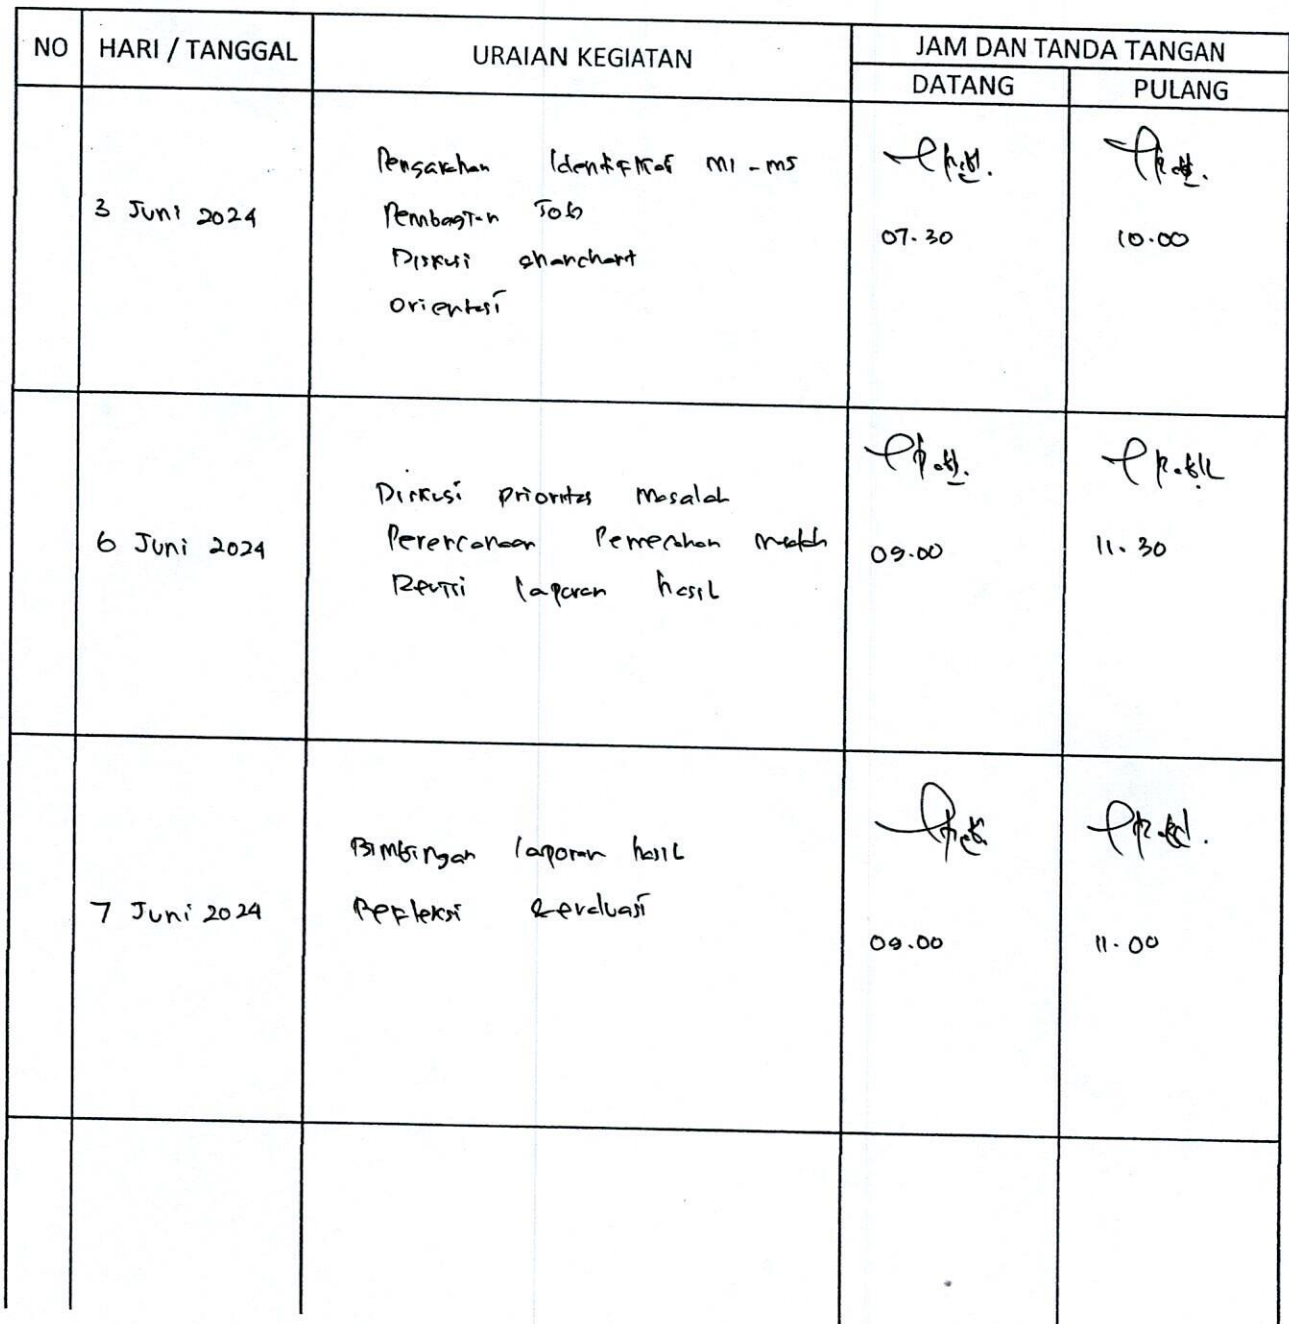 NO HARI / TANGGAL URAIAN KEGIATAN JAM DAN TANDA TANGAN
DATANG PULANG
3 Juni 2024
Pengarahan Identifikasi M1 - M5
Pembagian Job
Diskusi ghanchart
Orientasi
07.30 10.00
6 Juni 2024
Diskusi prioritas masalah
Perencanaan Pemecahan masalah
Revisi laporan hasil
09.00 11.30
7 Juni 2024
Bimbingan laporan hasil
Refleksi & evaluasi
09.00 11.00